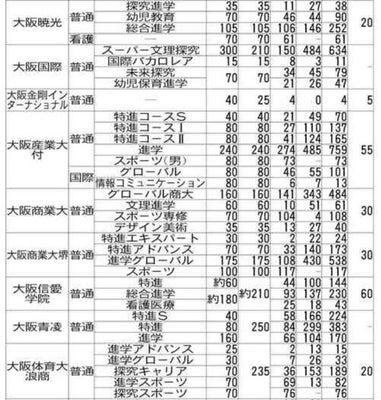 大阪暁光 普通 探究進学 35 35 11 27 38 20
幼児教育 70 70 46 44 90
総合進学 105 105 106 146 252
看護 — 70 70 61 — 61
大阪国際 普通 スーパー文理探究 300 210 150 484 634
国際バカロレア 15 15 8 3 11
未来探究 70 70 34 45 79
幼児保育進学 21 26 47
大阪金剛インターナショナル 普通 — 40 25 4 0 4 5
大阪産業大付 普通 特進コースS 40 40 21 49 70 55
特進コースⅠ 80 80 27 110 137
特進コースⅡ 80 80 41 124 165
進学 240 240 274 485 759
スポーツ(男) 80 80 73 — 73
国際 グローバル 80 80 46 55 101
情報コミュニケーション 80 80 6 7 13
大阪商業大 普通 グローバル商大 160 160 141 343 484 30
文理進学 60 60 10 51 61
スポーツ専修 70 70 104 4 108
デザイン美術 35 35 13 27 40
大阪商業大堺 普通 特進エキスパート 30 30 2 22 24 30
特進アドバンス 70 70 33 140 173
進学グローバル 175 175 108 430 538
スポーツ 100 100 117 — 117
大阪信愛学院 普通 特進 約60 約210 44 100 144
総合進学 約180 93 137 230 60
看護医療 25 18 43
大阪青凌 普通 特進S 40 250 58 166 224
特進 80 84 299 383
進学 160 66 104 170
大阪体育大浪商 普通 進学アドバンス 25 235 2 13 15 20
進学グローバル 30 7 26 33
探究キャリア 70 36 153 189
進学スポーツ 70 69 13 82
探究スポーツ 70 76 — 76